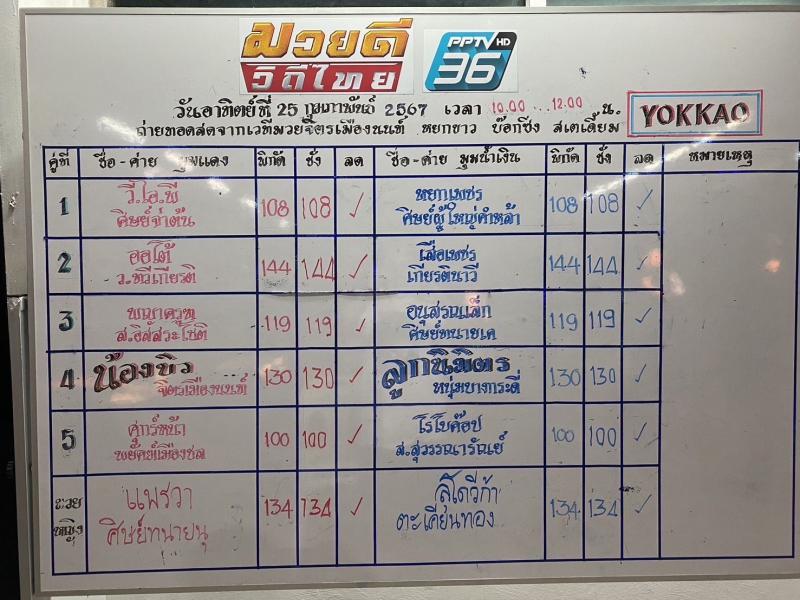 มวยดี
วิถีไทย
PPTV HD
36
วันอาทิตย์ที่ 25 กุมภาพันธ์ 2567 เวลา 10.00 ... 12.00 น.
YOKKAO
ถ่ายทอดสดจากเวทีมวยจิตรเมืองนนท์ หยกขาว บ๊อกซิ่ง สเตเดี้ยม
คู่ที่ ชื่อ - ค่าย มุมแดง พิกัด ชั่ง ลด ชื่อ - ค่าย มุมน้ำเงิน พิกัด ชั่ง ลด หมายเหตุ
1 วี.ไอ.พี 108 108 ✓ หยกเพชร 108 108 ✓
ศิษย์จ่าต้น ศิษย์ผู้ใหญ่คำหล้า
2 ออโต้ 144 144 ✓ เสือเพชร 144 144 ✓
ว.ทวีเกียรติ เกียรตินาวี
3 พญาครุฑ 119 119 ✓ อนุสรณเล็ก 119 119 ✓
ส.อิสสระโชติ ศิษย์ทนายเค
4 น้องบิว 130 130 ✓ ลูกนิมิตร 130 130 ✓
จิตรเมืองนนท์ หนุ่มบางกระดี่
5 ศุกร์หน้า 100 100 ✓ โรโบค๊อป 100 100 ✓
พยัคฆ์เมืองชล ส.สุวรรณารัณย์
มวย แพรวา 134 134 ✓ ลุโดวีก้า 134 134 ✓
หญิง ศิษย์ทนายนุ ตะเคียนทอง